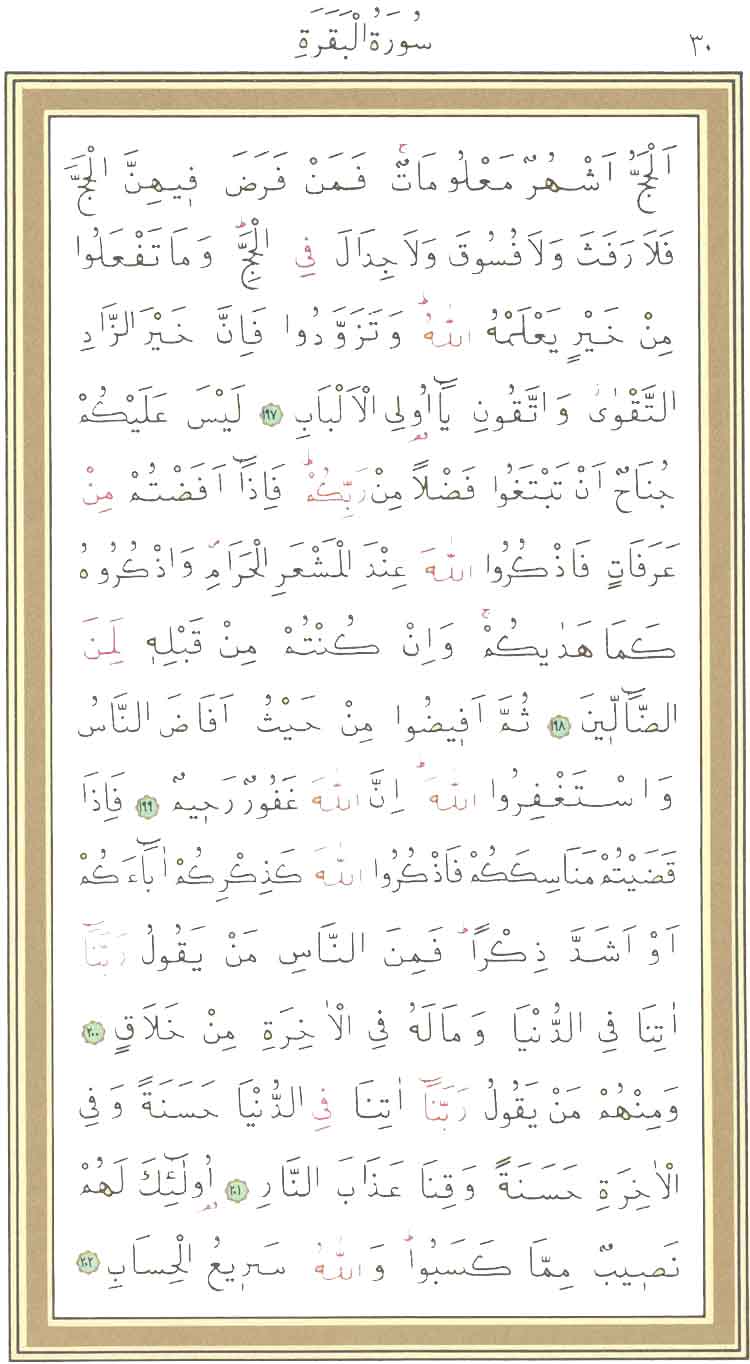 ٣٠ سُورَةُ الْبَقَرَةِ
اَلْحَجُّ اَشْهُرٌ مَعْلُومَاتٌۚ فَمَنْ فَرَضَ ف۪يهِنَّ الْحَجَّ
فَلَا رَفَثَ وَلَا فُسُوقَ وَلَا جِدَالَ فِي الْحَجِّۜ وَمَا تَفْعَلُوا
مِنْ خَيْرٍ يَعْلَمْهُ اللّٰهُۜ وَتَزَوَّدُوا فَاِنَّ خَيْرَ الزَّادِ
التَّقْوٰىۘ وَاتَّقُونِ يَٓا اُو۬لِي الْاَلْبَابِ ﴿١٩٧﴾ لَيْسَ عَلَيْكُمْ
جُنَاحٌ اَنْ تَبْتَغُوا فَضْلًا مِنْ رَبِّكُمْۜ فَاِذَٓا اَفَضْتُمْ مِنْ
عَرَفَاتٍ فَاذْكُرُوا اللّٰهَ عِنْدَ الْمَشْعَرِ الْحَرَامِۖ وَاذْكُرُوهُ
كَمَا هَدٰيكُمْۚ وَاِنْ كُنْتُمْ مِنْ قَبْلِه۪ لَمِنَ
الضَّٓالّ۪ينَ ﴿١٩٨﴾ ثُمَّ اَف۪يضُوا مِنْ حَيْثُ اَفَاضَ النَّاسُ
وَاسْتَغْفِرُوا اللّٰهَۜ اِنَّ اللّٰهَ غَفُورٌ رَح۪يمٌ ﴿١٩٩﴾ فَاِذَا
قَضَيْتُمْ مَنَاسِكَكُمْ فَاذْكُرُوا اللّٰهَ كَذِكْرِكُمْ اٰبَٓاءَكُمْ
اَوْ اَشَدَّ ذِكْرًاۜ فَمِنَ النَّاسِ مَنْ يَقُولُ رَبَّنَٓا
اٰتِنَا فِي الدُّنْيَا وَمَا لَهُ فِي الْاٰخِرَةِ مِنْ خَلَاقٍ ﴿٢٠٠﴾
وَمِنْهُمْ مَنْ يَقُولُ رَبَّنَٓا اٰتِنَا فِي الدُّنْيَا حَسَنَةً وَفِي
الْاٰخِرَةِ حَسَنَةً وَقِنَا عَذَابَ النَّارِ ﴿٢٠١﴾ اُو۬لٰٓئِكَ لَهُمْ
نَص۪يبٌ مِمَّا كَسَبُواۜ وَاللّٰهُ سَر۪يعُ الْحِسَابِ ﴿٢٠٢﴾